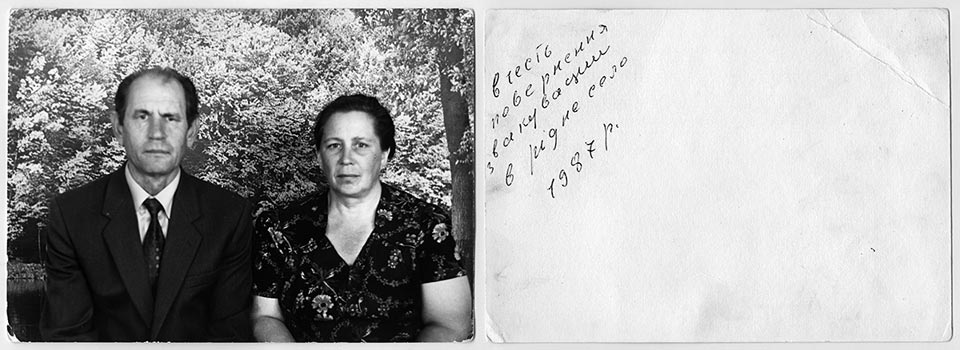 в честь
повернення
з евакувации
в рідне село
1987 р.